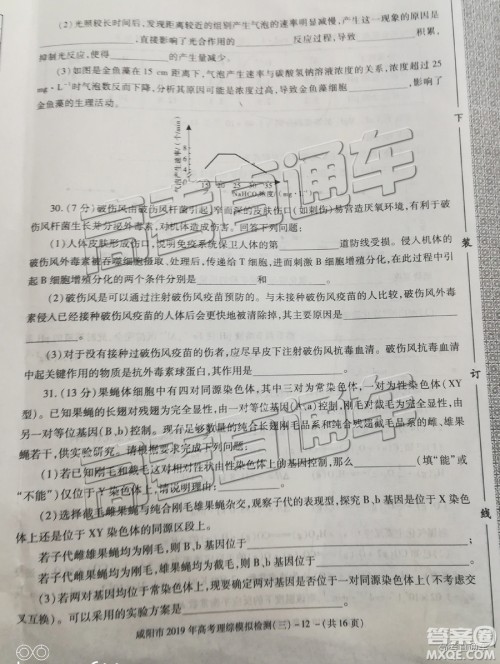 (2)光照较长时间后,发现距离较近的组别产生气泡的速率明显减慢,产生这一现象的原因是
,直接影响了光合作用的 反应过程,导致 积累,
抑制光反应,使得 的产生量减少。
(3)如图是金鱼藻在 15 cm 距离下,气泡产生速率与碳酸氢钠溶液浓度的关系,浓度超过 25
mg·L⁻¹时气泡数反而下降,分析其原因可能是浓度过高,导致金鱼藻细胞 ,影响了
金鱼藻的生理活动。
气泡产生速率/(个/min)
8
6
4
2
0 15 20 25 30 35
NaHCO₃浓度/(mg·L⁻¹)
30.(7分)破伤风由破伤风杆菌引起,窄而深的皮肤伤口(如刺伤)易营造厌氧环境,有利于破
伤风杆菌生长并分泌外毒素,对机体造成伤害。回答下列问题:
(1)人体皮肤形成伤口,说明免疫系统保卫人体的第 道防线受损。侵入机体的
破伤风外毒素被吞噬细胞摄取、处理后,传递给 T 细胞,再由 T 细胞呈递给 B 细胞。在此过程中引
起 B 细胞增殖分化的两个条件分别是 和 。
(2)破伤风是可以通过注射破伤风疫苗预防的。与未接种破伤风疫苗的人比较,破伤风外毒
素侵入已经接种破伤风疫苗的人体后会更快地被清除掉,其主要原因是
。
(3)对于没有接种过破伤风疫苗的伤者,应尽早为其注射破伤风抗毒血清。破伤风抗毒血清
中起关键作用的物质是抗外毒素球蛋白,其作用是 。
31.(13分)果蝇体细胞中有四对同源染色体,其中三对为常染色体,一对为性染色体(XY
型)。已知果蝇的长翅对残翅为完全显性,由一对等位基因(A、a)控制。刚毛对截毛为完全显性,由
另一对等位基因(B、b)控制。现有在自然种群中纯合长翅刚毛品系和纯合残翅截毛品系的雌、雄果
蝇若干,供实验研究。请根据要求完成下列问题:
(1)若已知刚毛和截毛这对相对性状由性染色体上的基因控制,那么 (填“能”或
“不能”)仅位于 Y 染色体上,请说明理由: 。
(2)选择截毛雌果蝇与纯合刚毛雄果蝇杂交,观察子代的表现型,探究 B、b 基因是位于 X 染色
体上还是位于 XY 染色体的同源区段上。
若子代雌雄果蝇均为刚毛,则 B、b 基因位于 ;
若子代雌果蝇均为刚毛,雄果蝇均为截毛,则 B、b 基因位于 。
(3)若两对基因均位于常染色体上,现要确定两对基因是否位于一对同源染色体上(不考虑交
叉互换)。可以采用的实验方案是 。
咸阳市 2019 年高考理综模拟检测(三)-12-(共16页)
下
装
订
线
高考直通车
高考直通车
答案圈
MXQE.COM